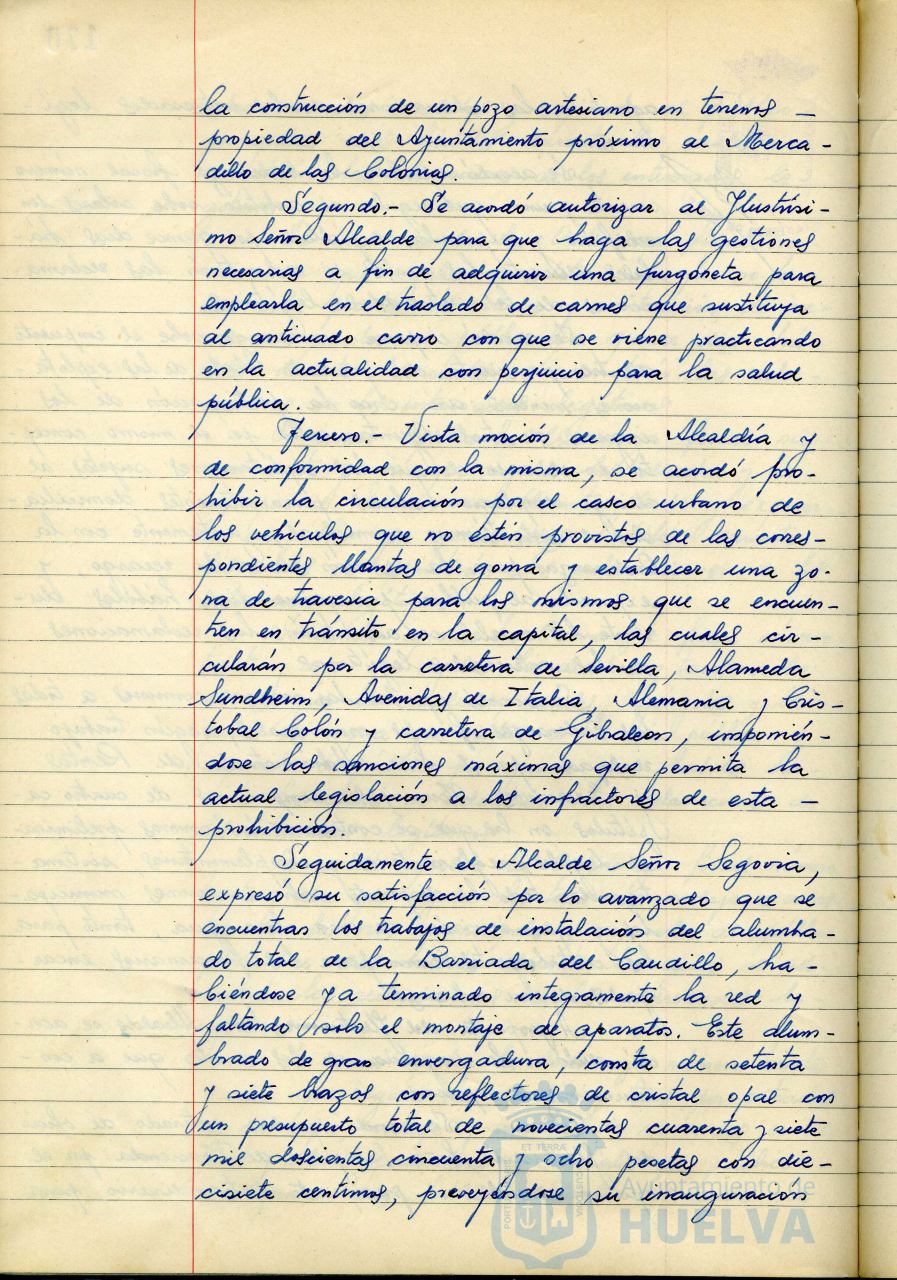 la construcción de un pozo artesiano en terrenos —
propiedad del Ayuntamiento próximo al Merca-
dillo de las Colonias.
Segundo.- Se acordó autorizar al Ilustrísi-
mo Señor Alcalde para que haga las gestiones
necesarias a fin de adquirir una furgoneta para
emplearla en el traslado de carnes que sustituya
al anticuado carro con que se viene practicando
en la actualidad con perjuicio para la salud
pública.
Tercero.- Vista moción de la Alcaldía y
de conformidad con la misma, se acordó pro-
hibir la circulación por el casco urbano de
los vehículos que no estén provistos de las corres-
pondientes llantas de goma y establecer una zo-
na de travesia para los mismos que se encuen-
tren en tránsito en la capital, las cuales cir-
cularán por la carretera de Sevilla, Alameda
Sundheim, Avenidas de Italia, Alemania y Cris-
tobal Colón y carretera de Gibraleon, imponién-
dose las sanciones máximas que permita la
actual legislación a los infractores de esta —
prohibición.
Seguidamente el Alcalde Señor Segovia,
expresó su satisfacción por lo avanzado que se
encuentras los trabajos de instalación del alumbra-
do total de la Barriada del Caudillo, ha-
biéndose ya terminado integramente la red y
faltando solo el montaje de aparatos. Este alum-
brado de gran envergadura, consta de setenta
y siete brazos con reflectores de cristal opal con
un presupuesto total de novecientas cuarenta y siete
mil doscientas cincuenta y ocho pesetas con die-
cisiete centimos, preveyéndose su inauguración
Ayuntamiento de
HUELVA